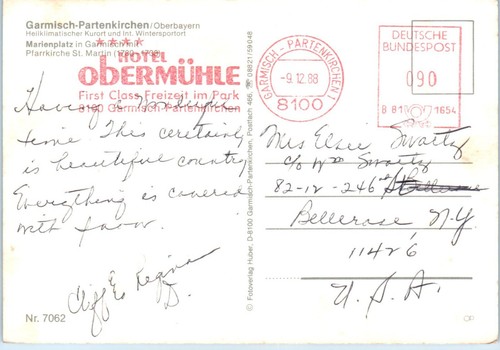 Garmisch-Partenkirchen/Oberbayern
Heilklimatischer Kurort und Int. Wintersportort
Marienplatz in Garmisch mit
Pfarrkirche St. Martin (1730 - 1733)
HOTEL
OBERMÜHLE
First Class Freizeit im Park
8100 Garmisch-Partenkirchen
GARMISCH - PARTENKIRCHEN 1
-9.12.88
8100
DEUTSCHE
BUNDESPOST
090
1654
Having a Wonderful
time This certainly
is beautiful country
Everything is covered
with snow.
Cliff & Regina
D.
Mrs Elsie Swartz
c/o Wm Swartz
82-12-246
Bellerose N-Y
11426
U.S.A.
Nr. 7062
© Fotoverlag Huber, D-8100 Garmisch-Partenkirchen, Postfach 466, 08821/59048